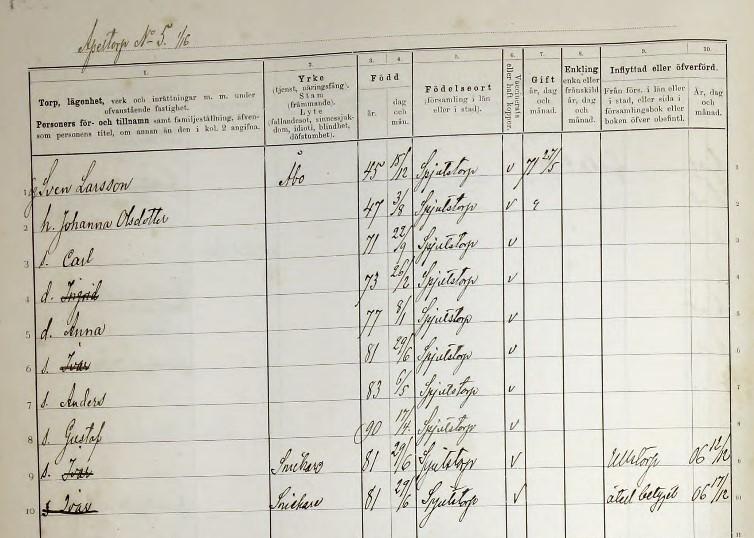 Apestorp No 5. 1/16
1. 2. 3. 4. 5. 6. 7. 8. 9. 10.
Torp, lägenhet, verk och inrättningar m. m. under ofvanstående fastighet.
Personers för- och tillnamn samt familjeställning, äfvensom personens titel, om annan än den i kol. 2 angifna.
Yrke (tjenst, näringsfång). Stam (främmande). Lyte (fallandesot, sinnessjukdom, idioti, blindhet, döfstumhet).
Född
år. dag och mån.
Födelseort (församling i län eller i stad).
Vaccinerats eller haft koppor.
Gift år, dag och månad.
Enkling enka eller frånskild år, dag och månad.
Inflyttad eller öfverförd.
Från förs. i län eller i stad, eller sida i församlingsbok eller boken öfver obefintl.
År, dag och månad.
1 Sven Larsson Åbo 45 15/12 Spjutstorp v 71 27/5 1
2 h. Johanna Olsdotter 47 3/8 Spjutstorp v " 2
3 s. Carl 71 22/9 Spjutstorp v 3
4 d. Ingrid 73 26/2 Spjutstorp v 4
5 d. Anna 77 8/11 Spjutstorp v 5
6 s. Ivar 81 29/6 Spjutstorp v 6
7 s. Anders 83 6/5 Spjutstorp v 7
8 s. Gustaf 90 17/4 Spjutstorp v 8
9 s. Ivar Snickare 81 29/6 Spjutstorp v Ullstorp 06 12/12 9
10 s Ivar Snickare 81 29/6 Spjutstorp v återl betyget 06 17/12 10
11